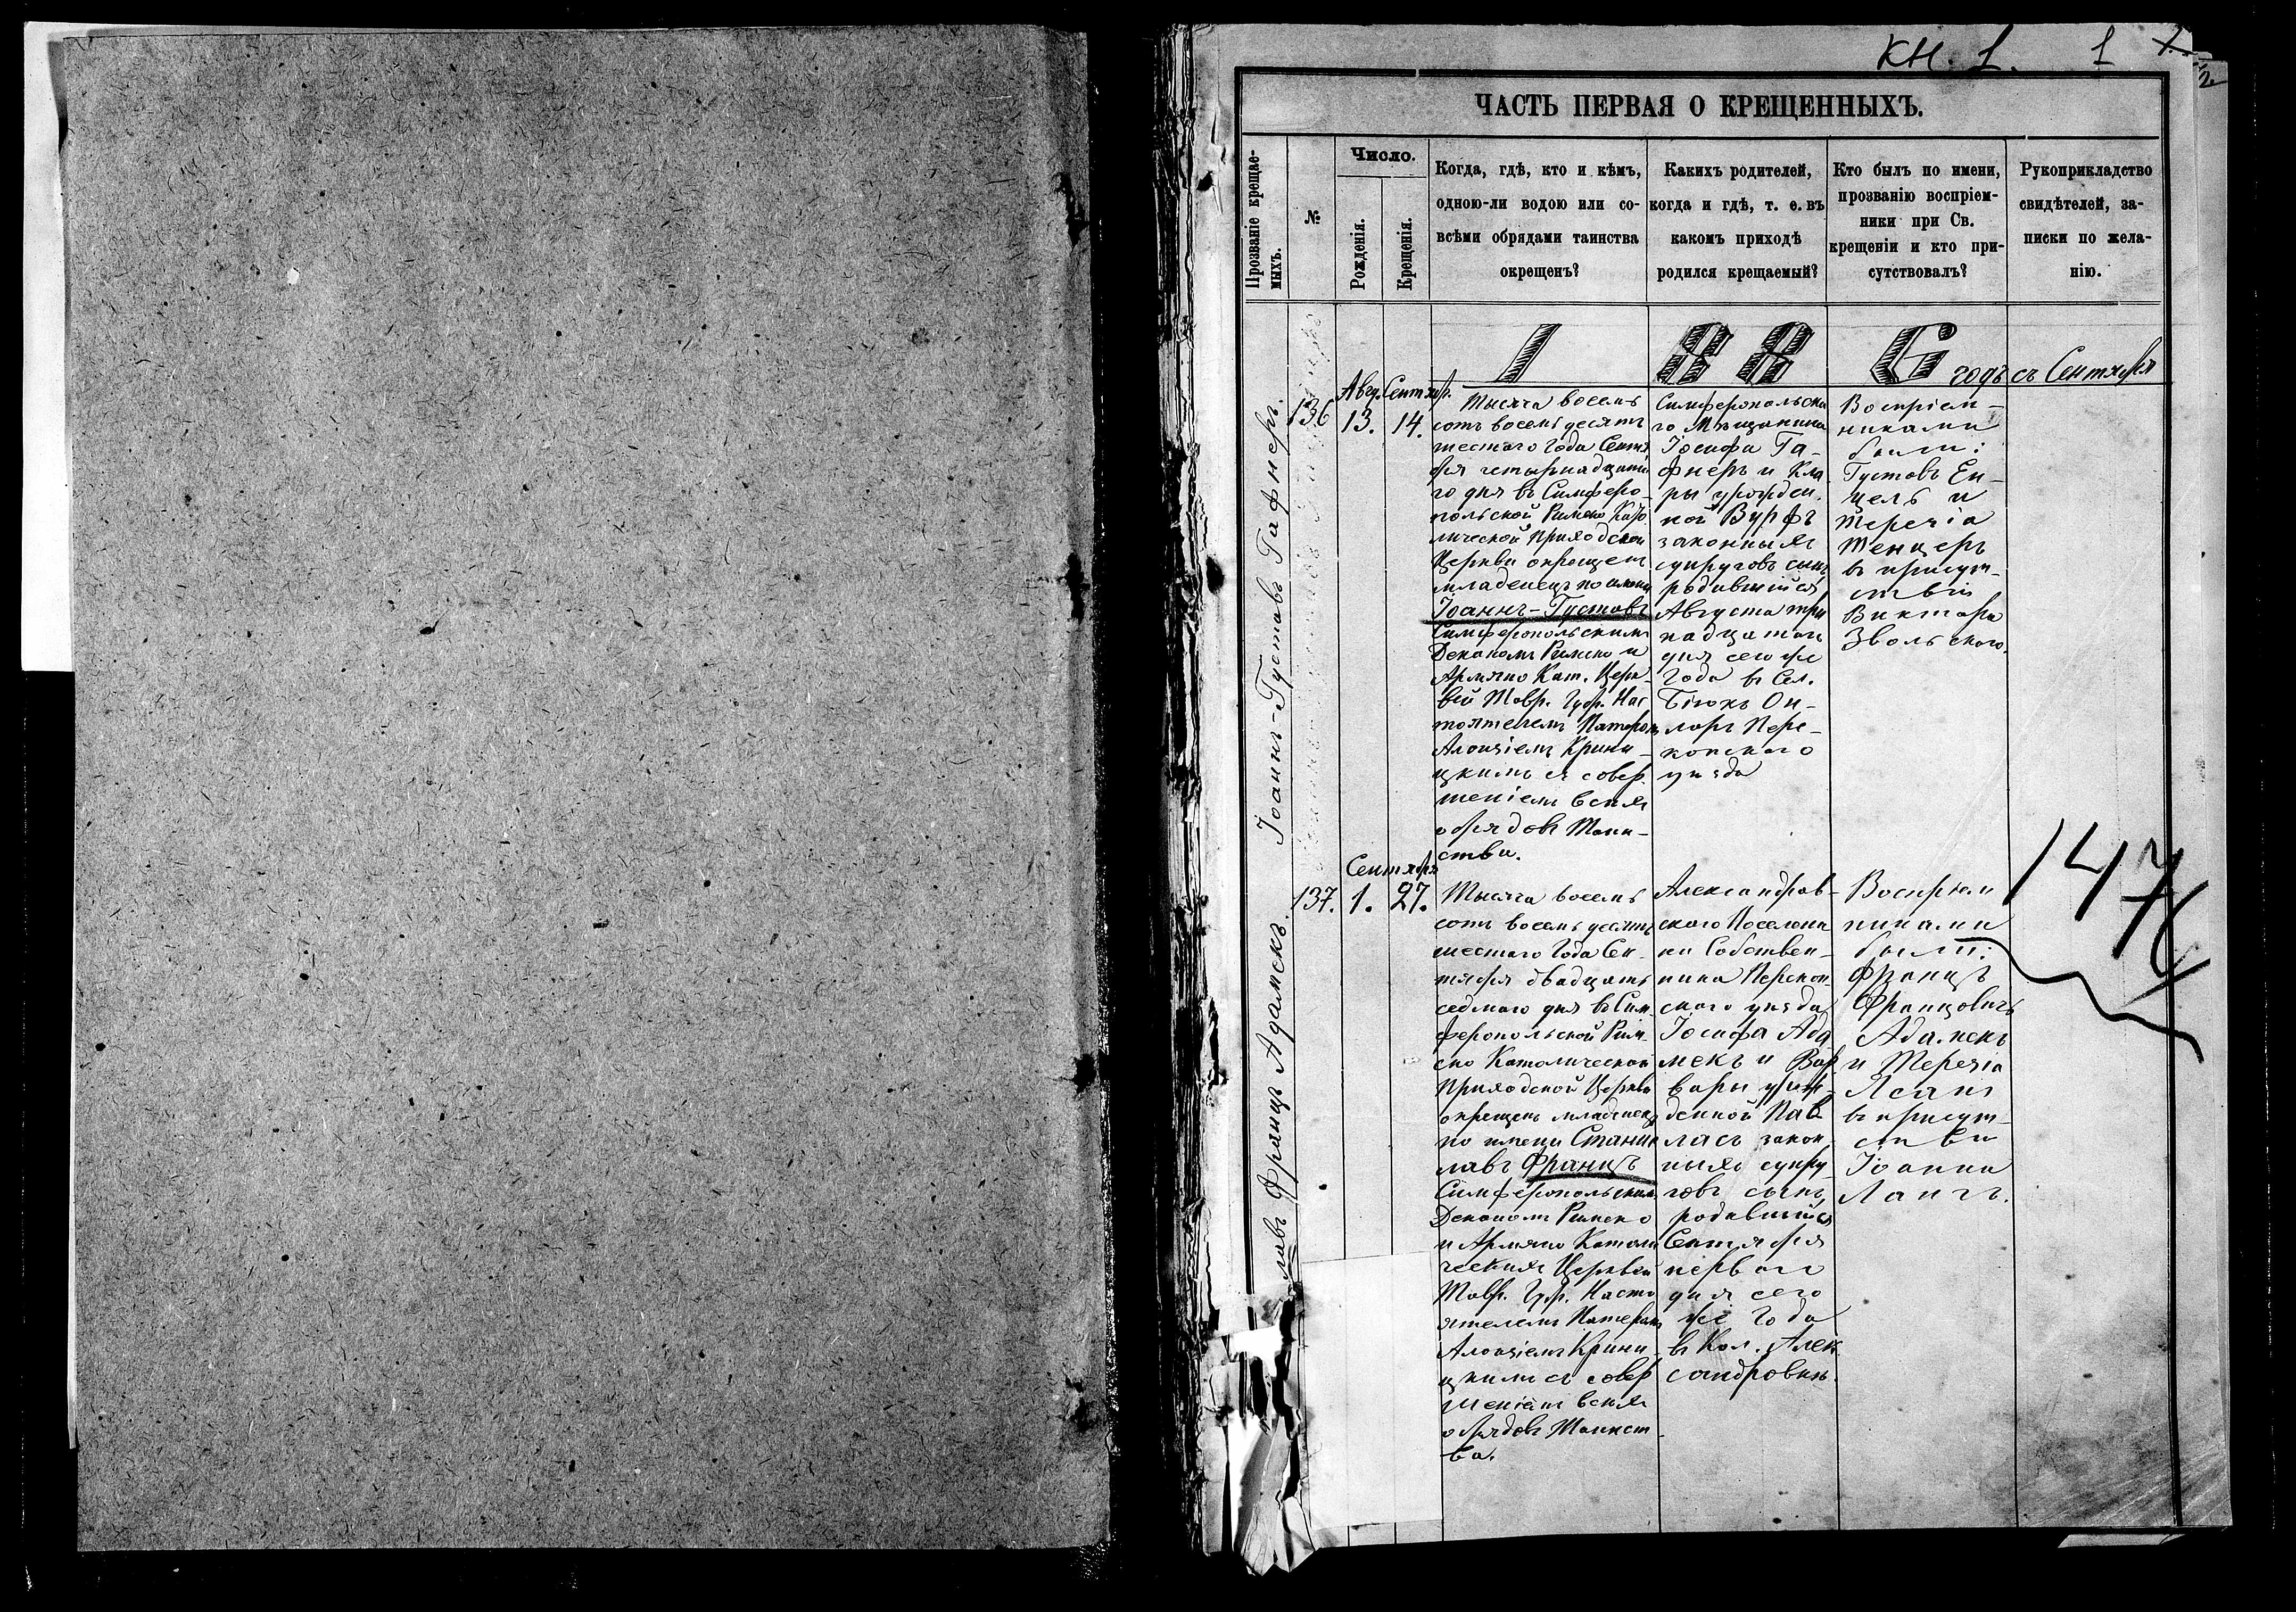 кн. 1.
1
ЧАСТЬ ПЕРВАЯ О КРЕЩЕННЫХЪ.
Прозваніе крещае-
мыхъ.
№
Число.
Рожденія.
Крещенія.
Когда, гдѣ, кто и кѣмъ,
одною-ли водою или со-
всѣми обрядами таинства
окрещенъ?
Какихъ родителей,
когда и гдѣ, т. е. въ
какомъ приходѣ
родился крещаемый?
Кто былъ по имени,
прозванію воспріем-
ники при Св.
крещеніи и кто при-
сутствовалъ?
Рукоприкладство
свидѣтелей, за-
писки по жела-
нію.
1886 годъ съ Сентября
Іоаннъ-Густавъ Гафнеръ.
136
Авгу. 13.
Сентябр. 14.
Тысяча восемь
сотъ восемьдесятъ
шестого Года Сентя
бря четырнадцата
го дня въ Симферо-
польской Римско Като
лической Приходской
Церкви окрещенъ
младенецъ по имени
Іоаннъ-Густавъ
Симферопольскимъ
Деканомъ Римско и
Армяно Кат. Церк-
вей Тавр. Губр. Нас
тоятелемъ Патеромъ
Алоизіемъ Крини-
цкимъ съ совер-
шеніемъ всѣхъ
обрядовъ Таин-
ства.
Симферопольска
го Мѣщанина
Іосифа Га-
фнеръ и Кла
ры урожден.
ной Вурфъ
законныхъ
супруговъ сынъ
родившійся
Августа три
надцатаго
дня сего же
Года въ Сел.
Бьюкъ Он-
ларъ Пере-
копскаго
уѣзда
Воспріем-
никами
были:
Густавъ Ен-
цель и
Терезіа
Тенцеръ
въ присут-
ствіи
Виктора
Звольского.
лавъ Францъ Адамекъ.
137.
Сентября
1. 27.
Тысяча восемь
сотъ восемьдесятъ
шестого Года Сен-
тября двадцать
седмого дня въ Сим-
феропольской Рим-
ско Католической
Приходской Церкви
окрещенъ младенецъ
по имени Станис
лавъ Францъ
Симферопольским.
Деканомъ Римско
и Армяно Католи
ческихъ Церквей
Тавр. Губр. Насто
ятелемъ Патеромъ
Алоизіемъ Крини-
цкимъ съ совер
шеніемъ всѣхъ
обрядовъ Таинст-
ва.
Александров-
ского Поселяни
на Собствен-
ника Перекоп-
скаго уѣзда
Іосифа Ада
мекъ и Вар
вары урож-
денной Пав
ласъ закон
ныхъ супру
говъ сынъ
родившійся
Сентября
перваго
дня сего
же Года
въ Кол. Алек
сандровкѣ.
Воспріем
никами
были:
Францъ
Францовичъ
Адамекъ
и Терезіа
въ присут-
ствіи
Іоанна
Лангъ.